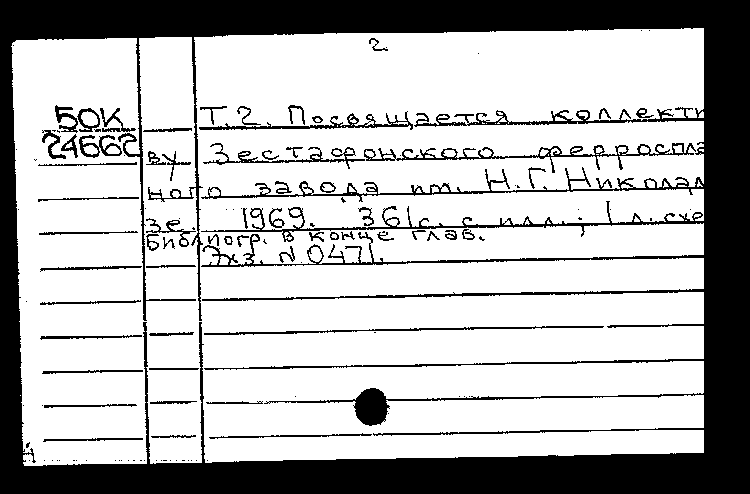 2
50К Т.2. Посвящается коллекти
24662 ву Зестафонского ферроспла
ного завода им. Н.Г. Николад
зе. 1969. 361с. с илл.; 1 л. схе
Библиогр. в конце глав.
Экз. N 0471.